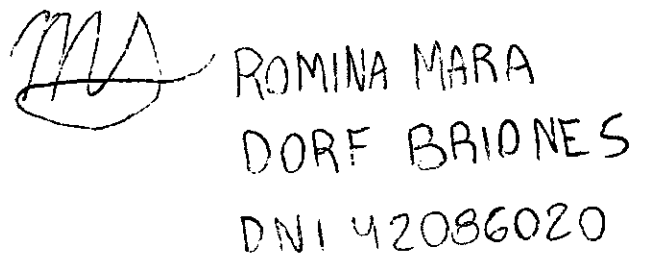 ROMINA MARA
DORF BRIONES
DNI 42086020